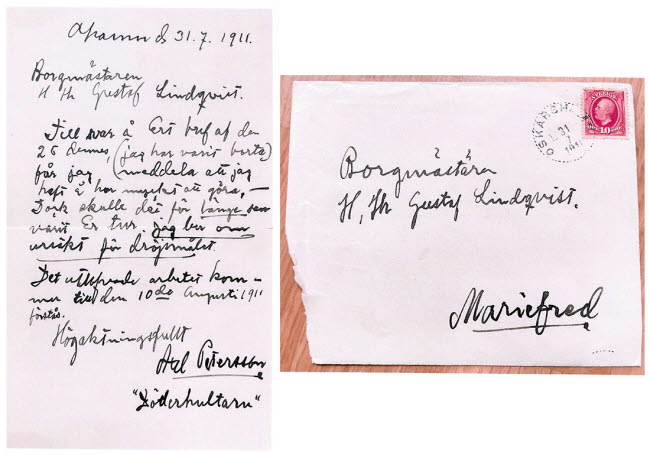 d 31.7. 1911.
Borgmästaren
H Hh Gustaf Lindqvist.
Till svar å Ert bref af den
26 dennes, (jag har varit borta)
får jag meddela att jag
haft å har mycket att göra, —
Dock skulle det för länge sen
varit Er tur. jag ber om
ursäkt för dröjsmålet
Det utlofvade arbetet kom-
mer till den 10de Augusti 1911
förstås.
Högaktningsfullt
Axel Petersson
"Döderhultarn"
OSKARSH
31
SVERIGE
10
Borgmästaren
H, Hh Gustaf Lindqvist.
Mariefred